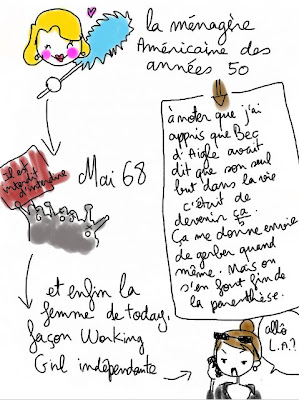 la ménagère
Américaine des
années 50
à noter que j'ai
appris que Bec
d'Aigle avait
dit que son seul
but dans la vie
c'était de
devenir ça.
Ça me donne envie
de gerber quand
même. Mais on
s'en fout fin de
la parenthèse.
Il est
interdit
d'interdire
Mai 68
et enfin la
femme de today,
façon Working
Girl indépendante
allô
L.A.?